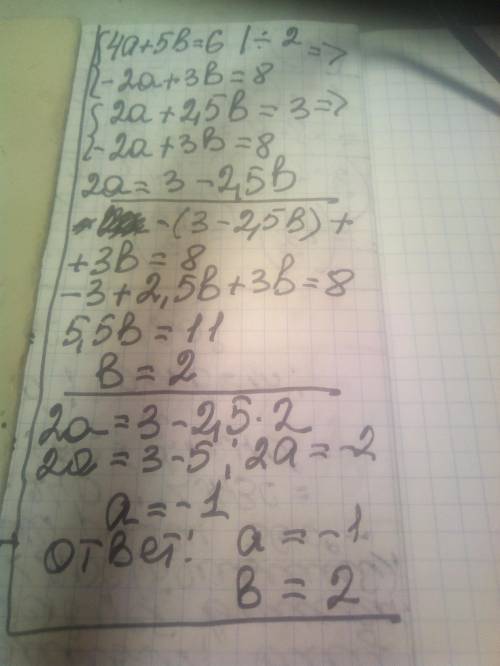 {4a+5в=6 | ÷ 2 =>
{-2a+3в=8
{2a+2,5в=3=>
{-2a+3в=8
2a=3-2,5в
-(3-2,5в)+
+3в=8
-3+2,5в+3в=8
5,5в=11
в=2
2a=3-2,5·2
2a=3-5; 2a=-2
a=-1
ответ: a=-1
в=2